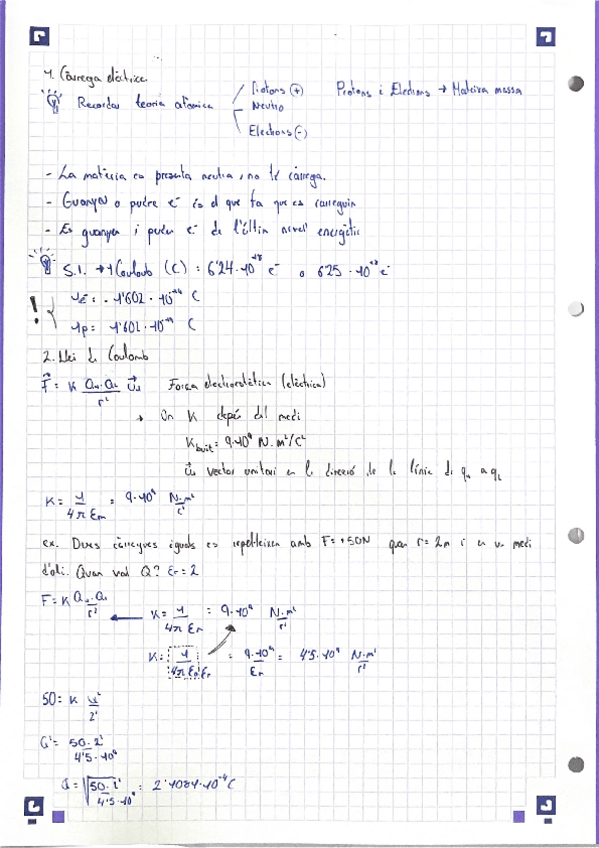 1. Càrrega elèctrica
Recordar teoria atòmica
Protons (+)
Neutro
Electrons (-)
Protons i Electrons → Mateixa massa
- La matèria es presenta neutra, no té càrrega.
- Guanyar o pedre e⁻ és el que fa que es carreguin
- Es guanyen i perden e⁻ de l'últim nivell energètic
S.I. → 1 Coulomb (C) : 6'24·10¹⁸ e⁻ o 6'25·10¹⁸ e⁻
! 1e⁻: -1'602·10⁻¹⁹ C
1p: 1'602·10⁻¹⁹ C
2. Llei de Coulomb
F⃗ = K Q₁·Q₂/r² u⃗ᵣ Força electrostàtica (elèctrica)
→ On K depén del medi
K buit = 9·10⁹ N·m²/C²
vector unitari en la direcció de la línia de q₁ a q₂
K = 1/4π εm = 9·10⁹ N·m²/c²
ex. Dues càrregues iguals es repel·leixen amb F = +50N quan r = 2m i en un medi
d'oli. Quan val Q? εr = 2
F = K Q₁·Q₂/r² ← K = 1/4π εm = 9·10⁹ N·m²/c²
K = 1/4π ε₀ εr = 9·10⁹/εr = 4'5·10⁹ N·m²/c²
50 = K Q²/2²
Q² = 50·2²/4'5·10⁹
Q = √50·2²/4'5·10⁹ = 2'1081·10⁻⁴ C